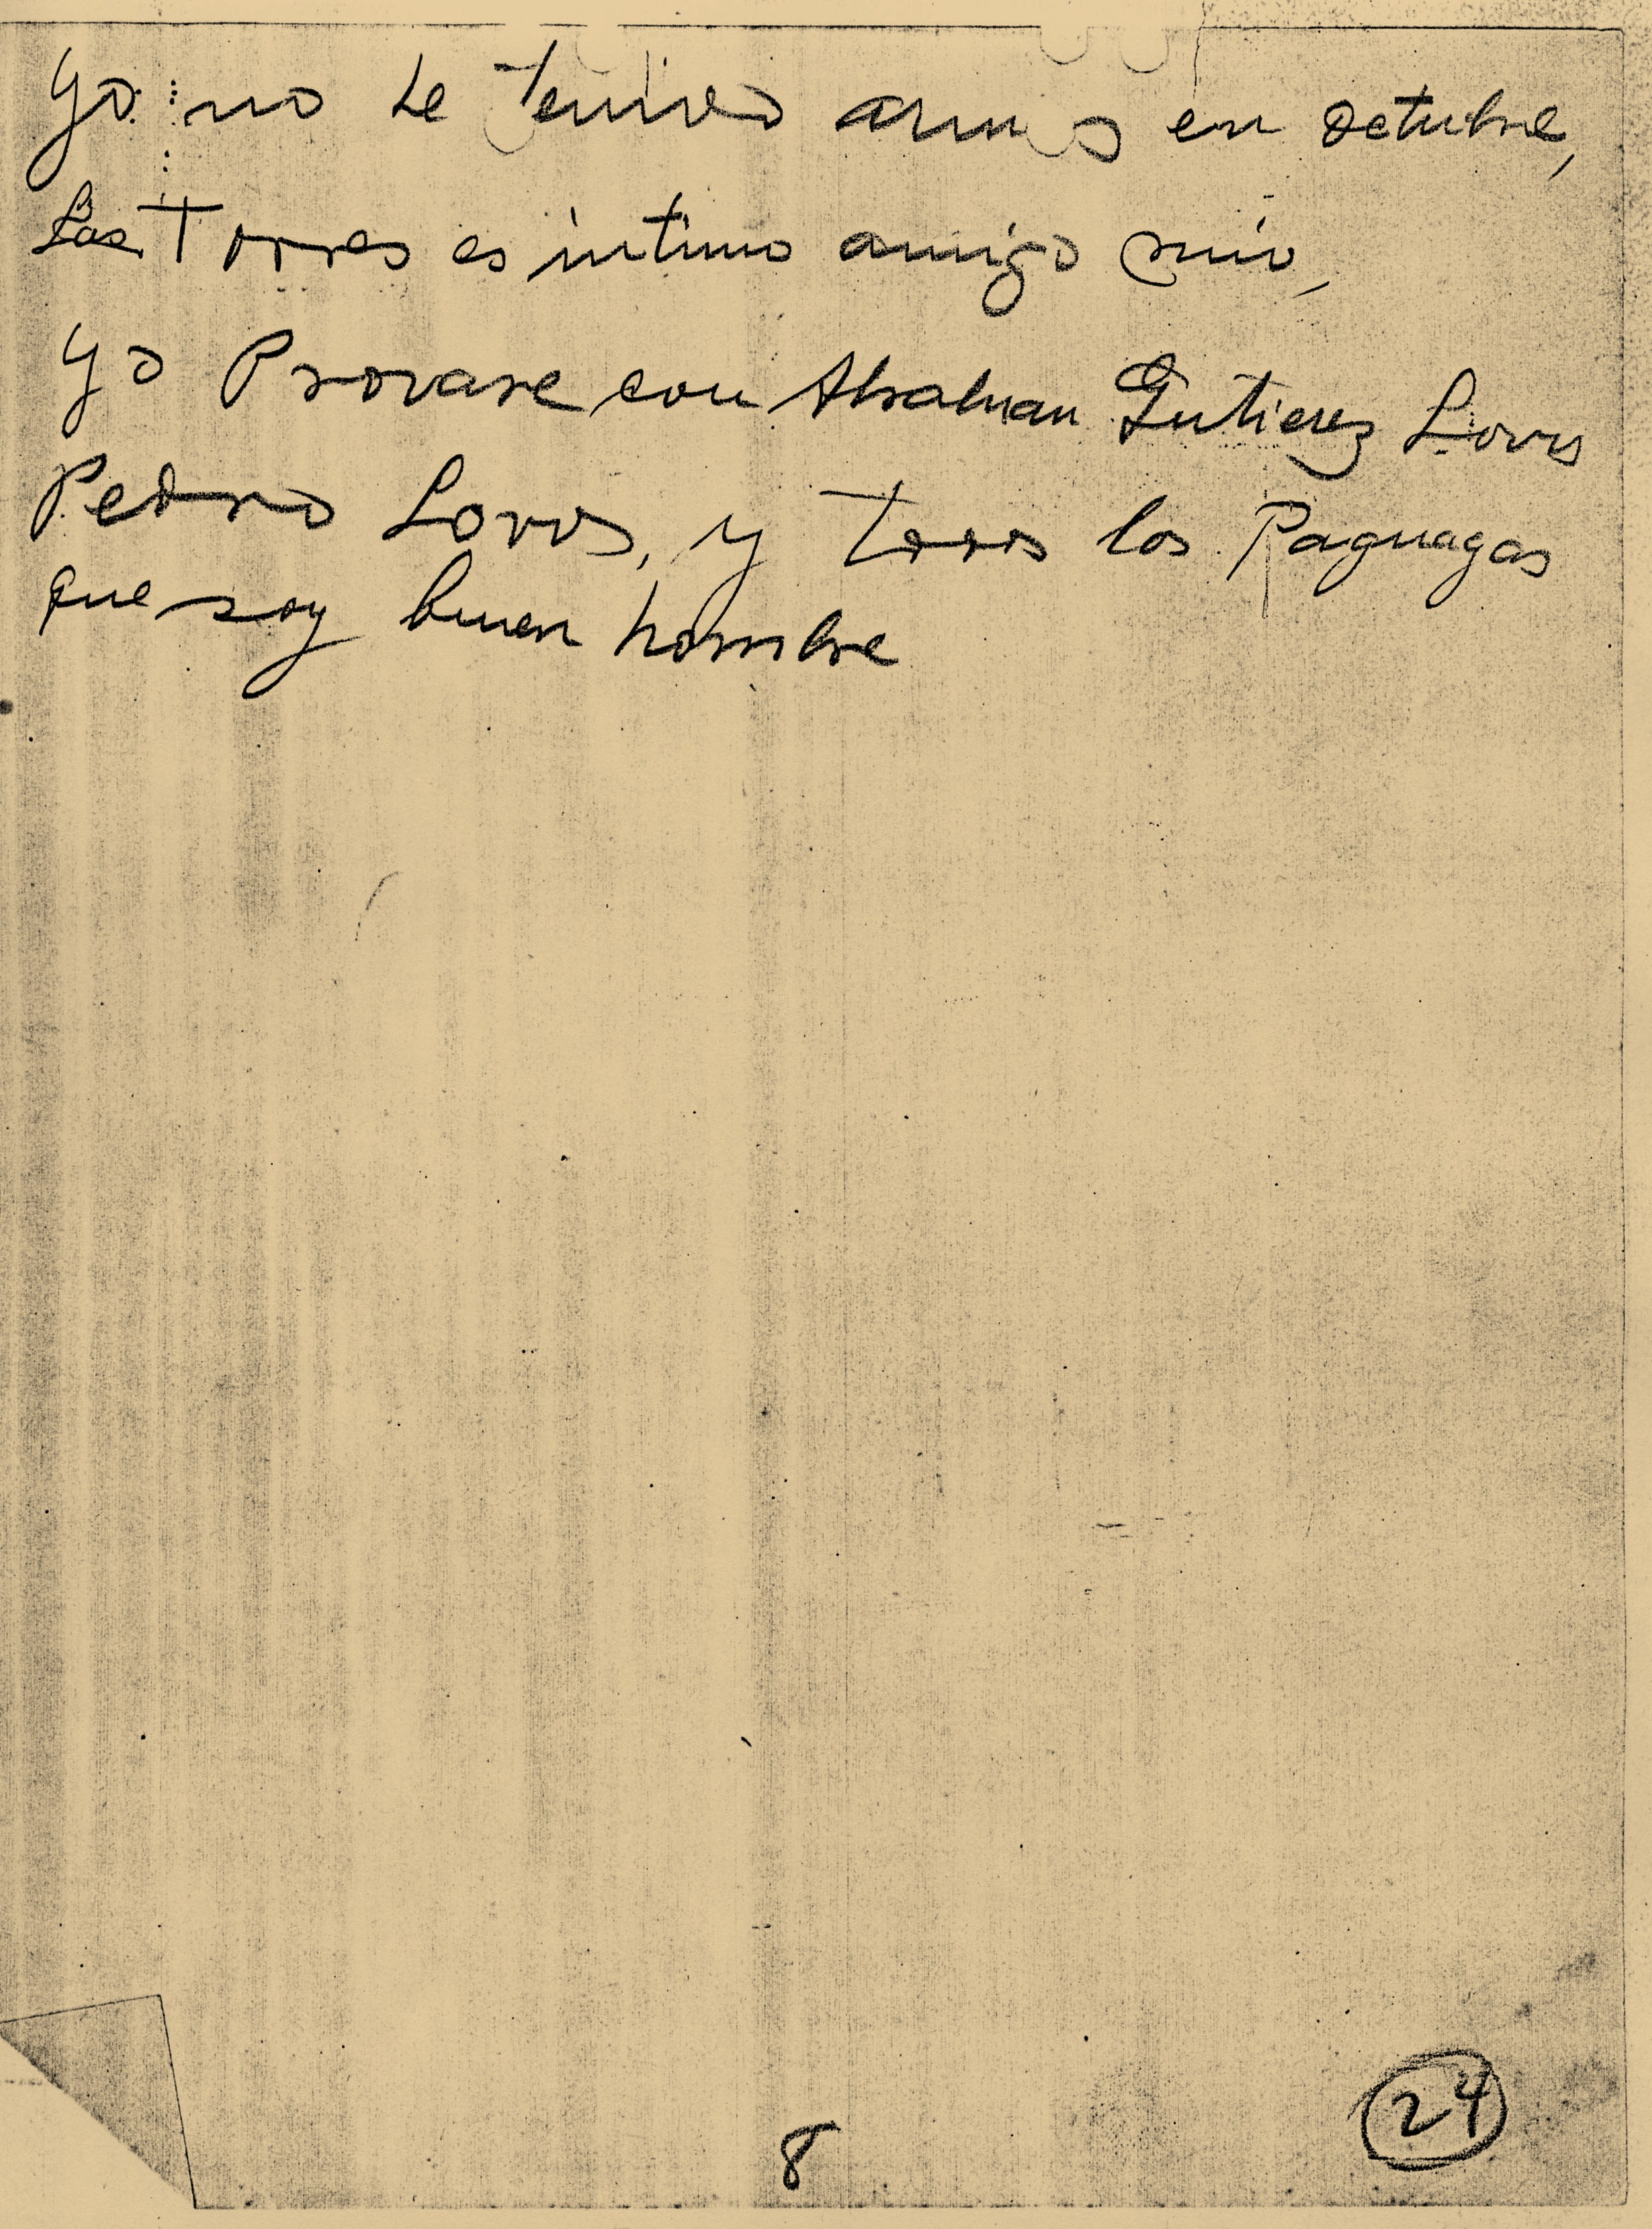 Yo no he tenido armas en octubre,
Las Torres es intimo amigo mio,
Yo Provare con Abraham Gutierez Lovos
Pedro Lovos, y todos los Paguagas
que soy buen hombre
8
24